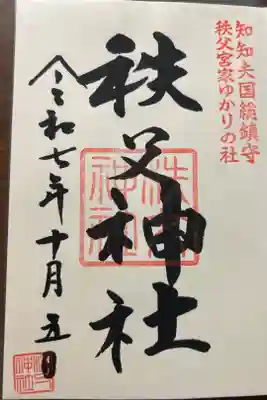 知知夫国総鎮守
秩父宮家ゆかりの社
秩父神社
秩父神社
令和七年十月五日